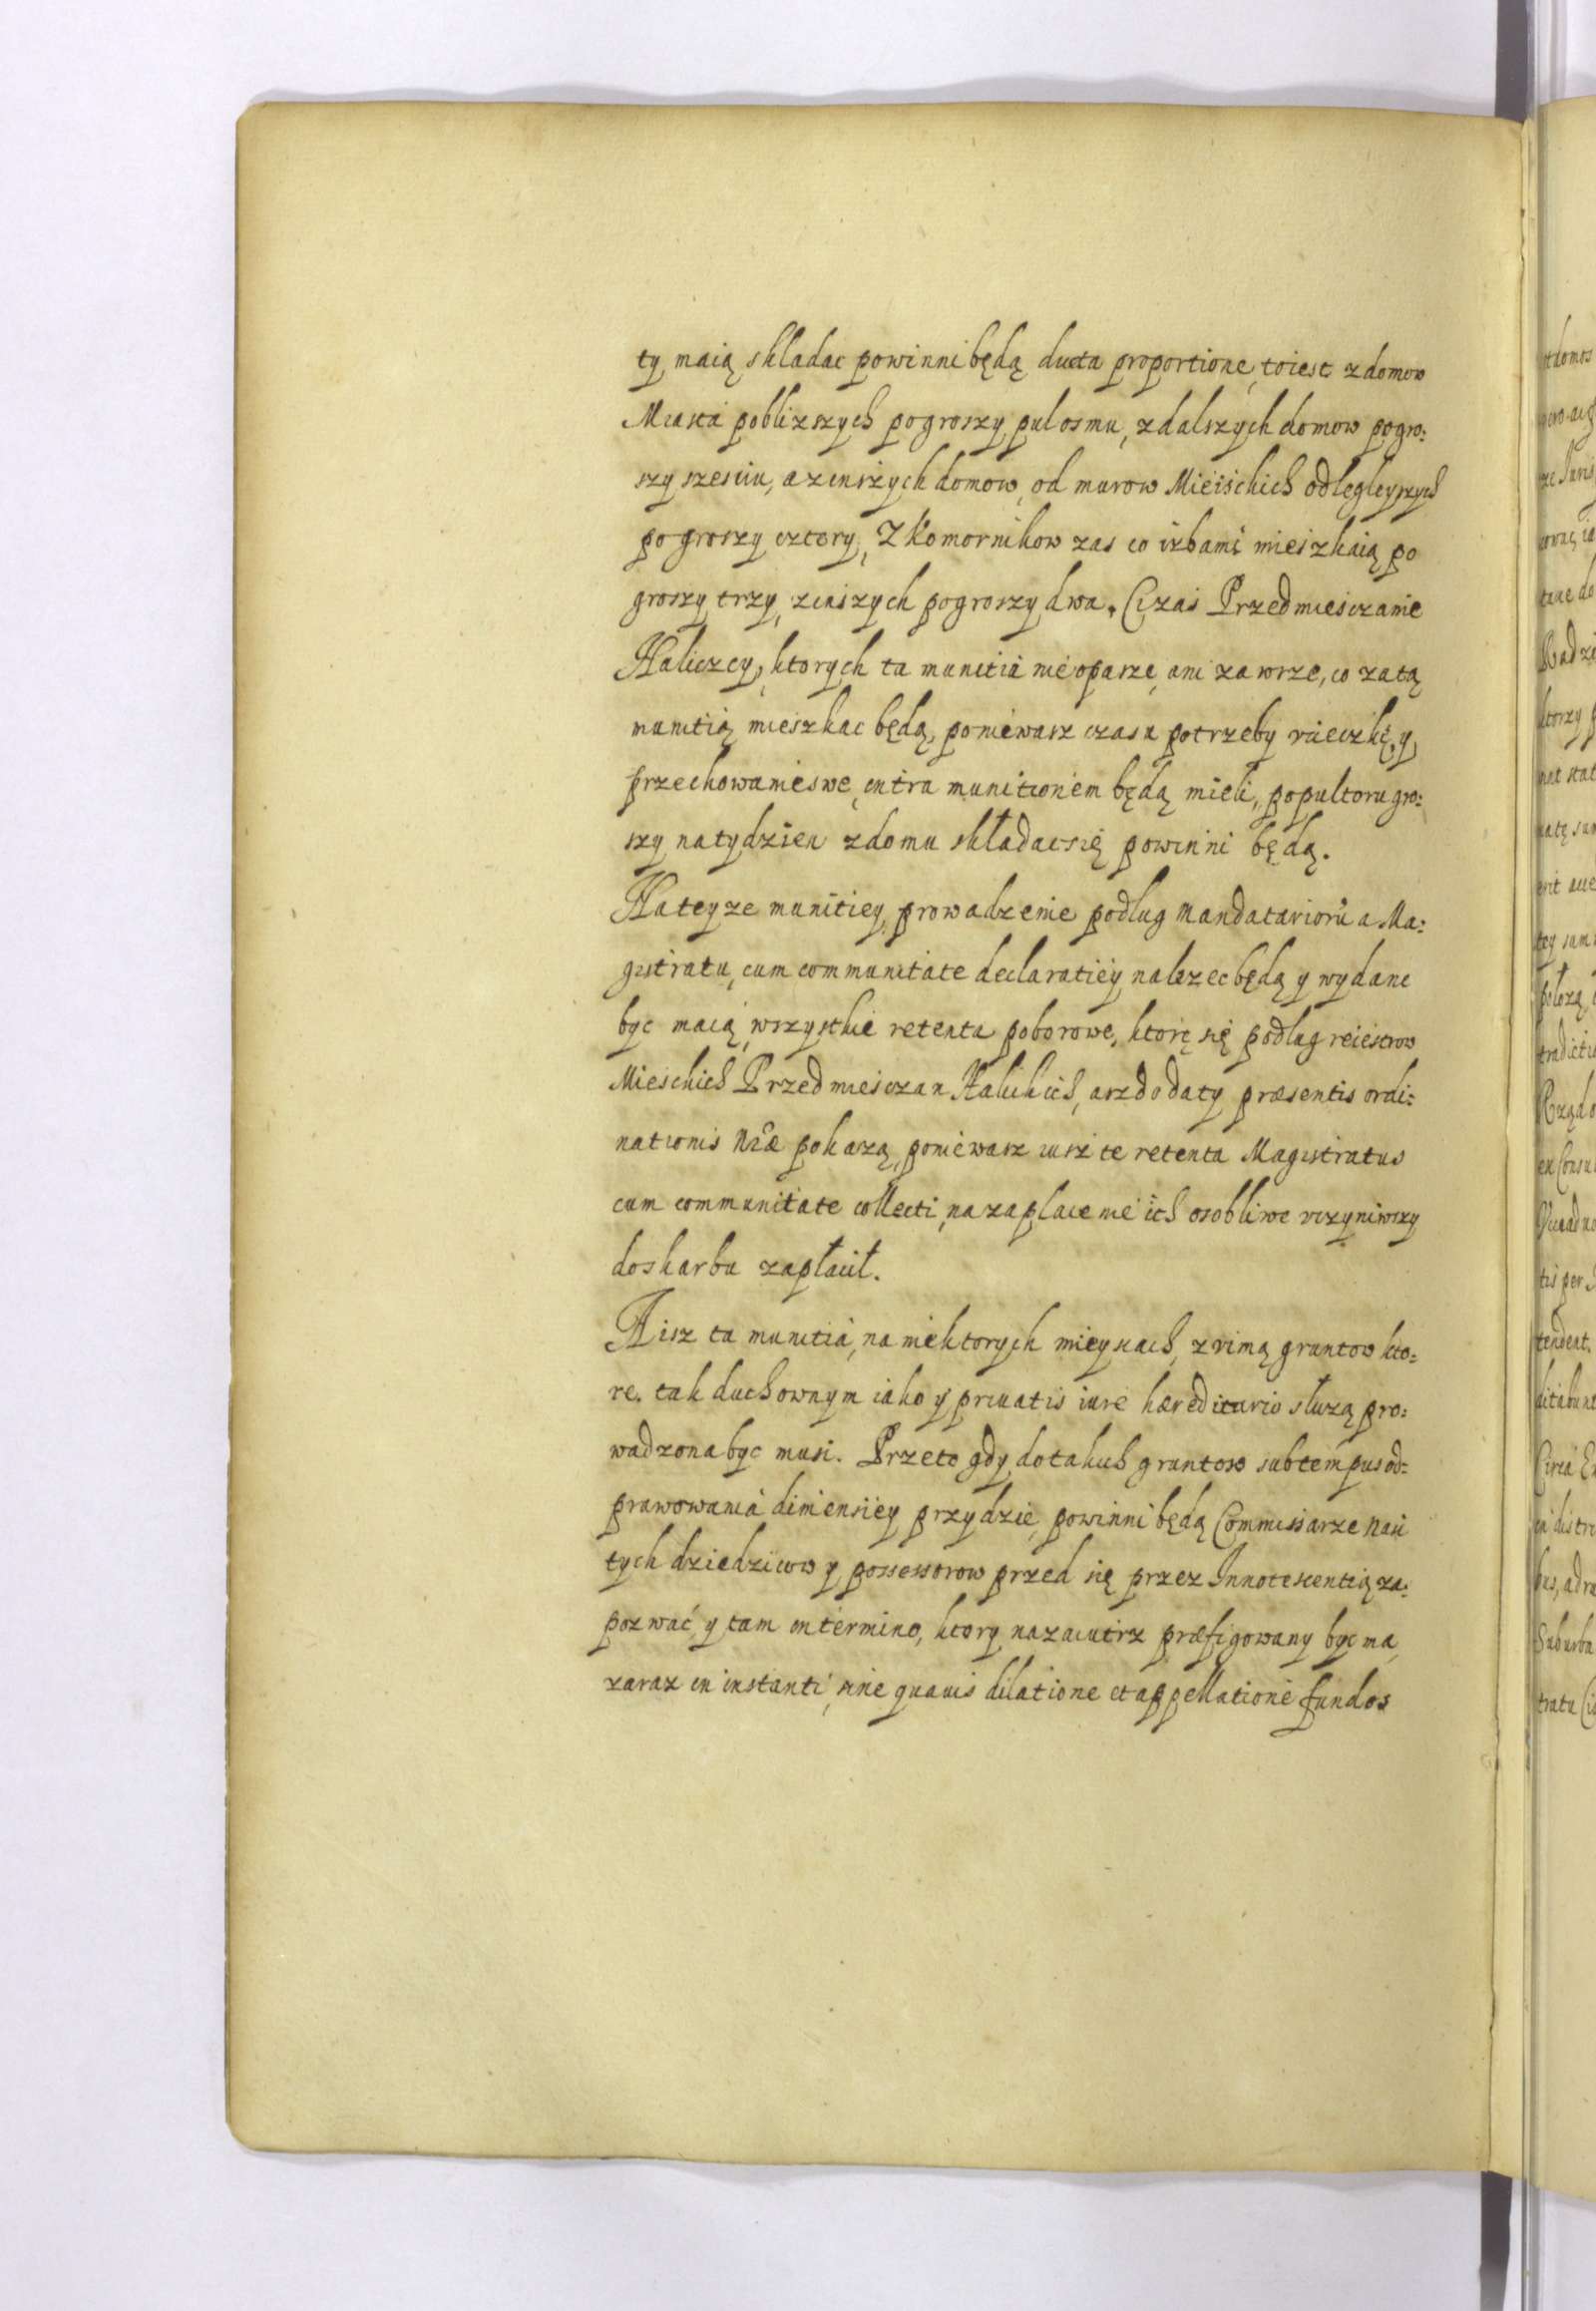 ty maią skladac powinni będą ducta proportione, to iest z domow
Miasta poblizszych po groszy pul osmu, z dalszych domow po gro:
szy szesciu, a z inszych domow, od murow Mieiskich odlegleyszych
po groszy cztery, Z Komornikow zas co izbami mieszkaią po
groszy trzy, z inszych po groszy dwa. Ci zas Przedmiesczanie
Haliczcy, ktorych ta munitia nie oparze, ani zawrze, co za tą
munitią mieszkac będą, poniewasz czasu potrzeby vcieczkę, y
przechowanie swe, intra munitionem będą mieli, po pultoru gro:
szy na tydzien z domu składac się powinni będą.
Na teyze munitiey, prowadzenie podlug Mandatarioru a Ma:
gistratu, cum communitate declaratiey, nalezec będą y wydane
byc maią, wszystkie retenta poborowe, ktorę się podlug reiestrow
Mieskich Przedmiesczan Halickich, asz do daty præsentis ordi:
nationis Nræ pokazą, poniewasz iusz te retenta Magistratus
cum communitate collecti, na zaplacenie ich osobliwe vczyniwszy
do skarbu zapłacił.
A isz ta munitia, na niektorych mieyscach, z rimą gruntow kto:
re. tak duchownym iako y priuatis iure hæreditario słuzą pro:
wadzona byc musi. Przeto gdy do takich gruntow sub tempus od:
prawowania dimensiey przydzie, powinni będą Commissarze Nasi
tych dziedzicow y possessorow przed się przez Innotescentią za:
pozwać, y tam in termino, ktory nazaiutrz præfigowany byc ma,
zaraz in instanti, sine quauis dilatione et appellatione fundos